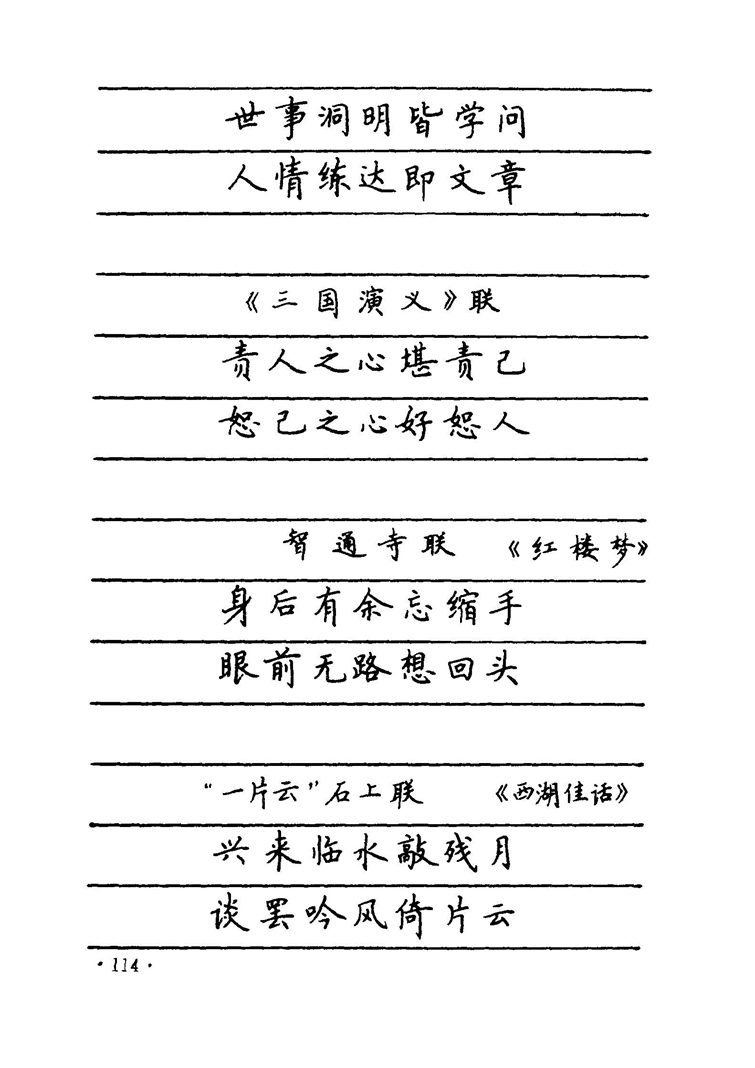 世事洞明皆学问
人情练达即文章
《三国演义》联
责人之心堪责己
恕己之心好恕人
智通寺联 《红楼梦》
身后有余忘缩手
眼前无路想回头
“一片云”石上联 《西湖佳话》
兴来临水敲残月
谈罢吟风倚片云
·114·